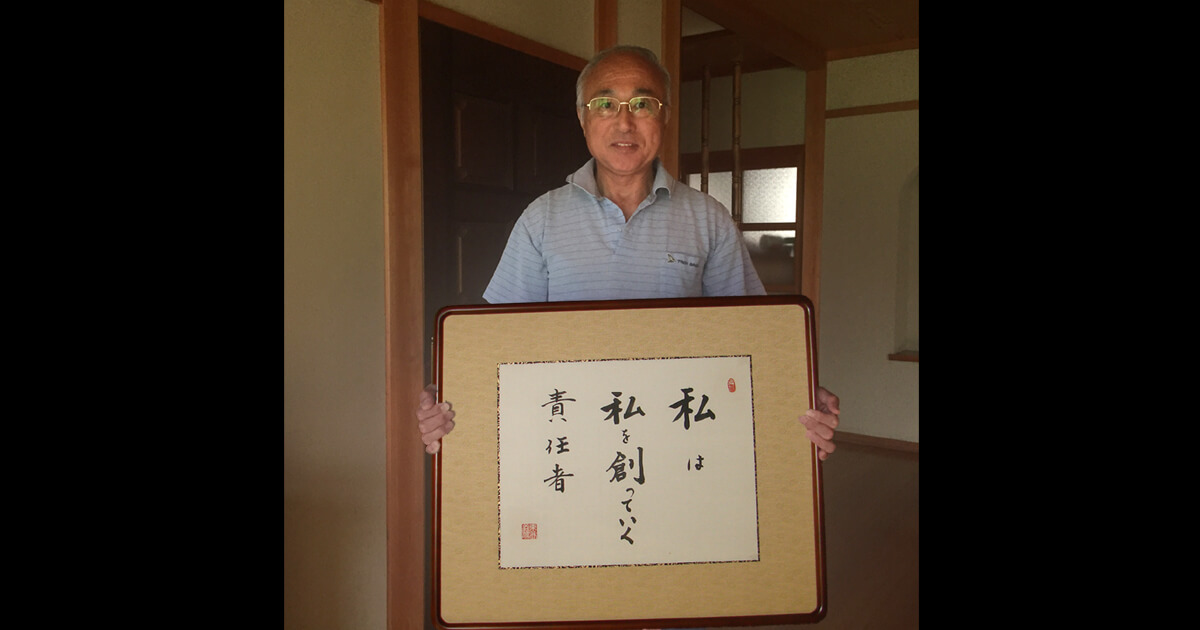 私は
私を創っていく
責任者